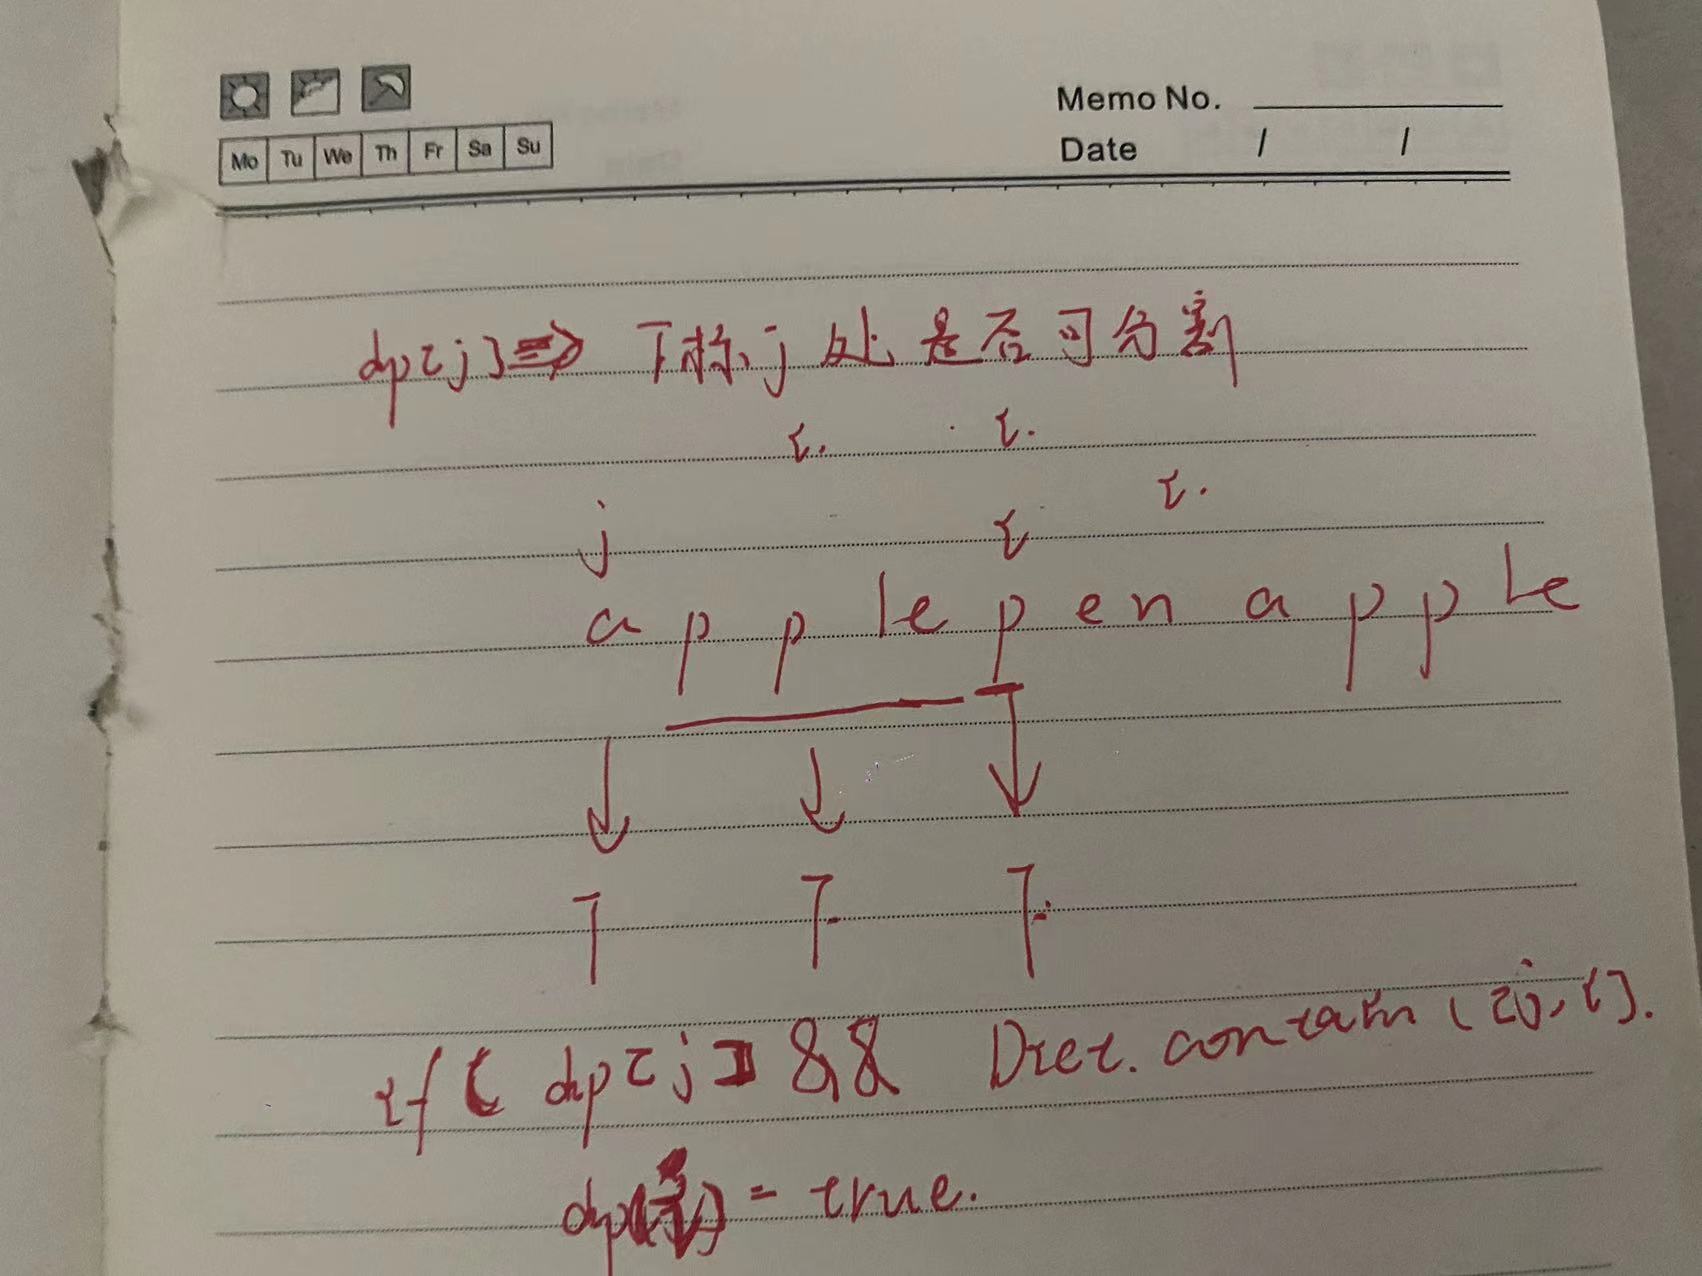 Memo No.
Mo Tu We Th Fr Sa Su
Date / /
dp[j] ⇒ 下标j处是否可分割
i. i.
i.
j i
a p p le p e n a p p le
T T T
if ( dp[j] && Dict.contain ([j, i].
dp[i] = true.